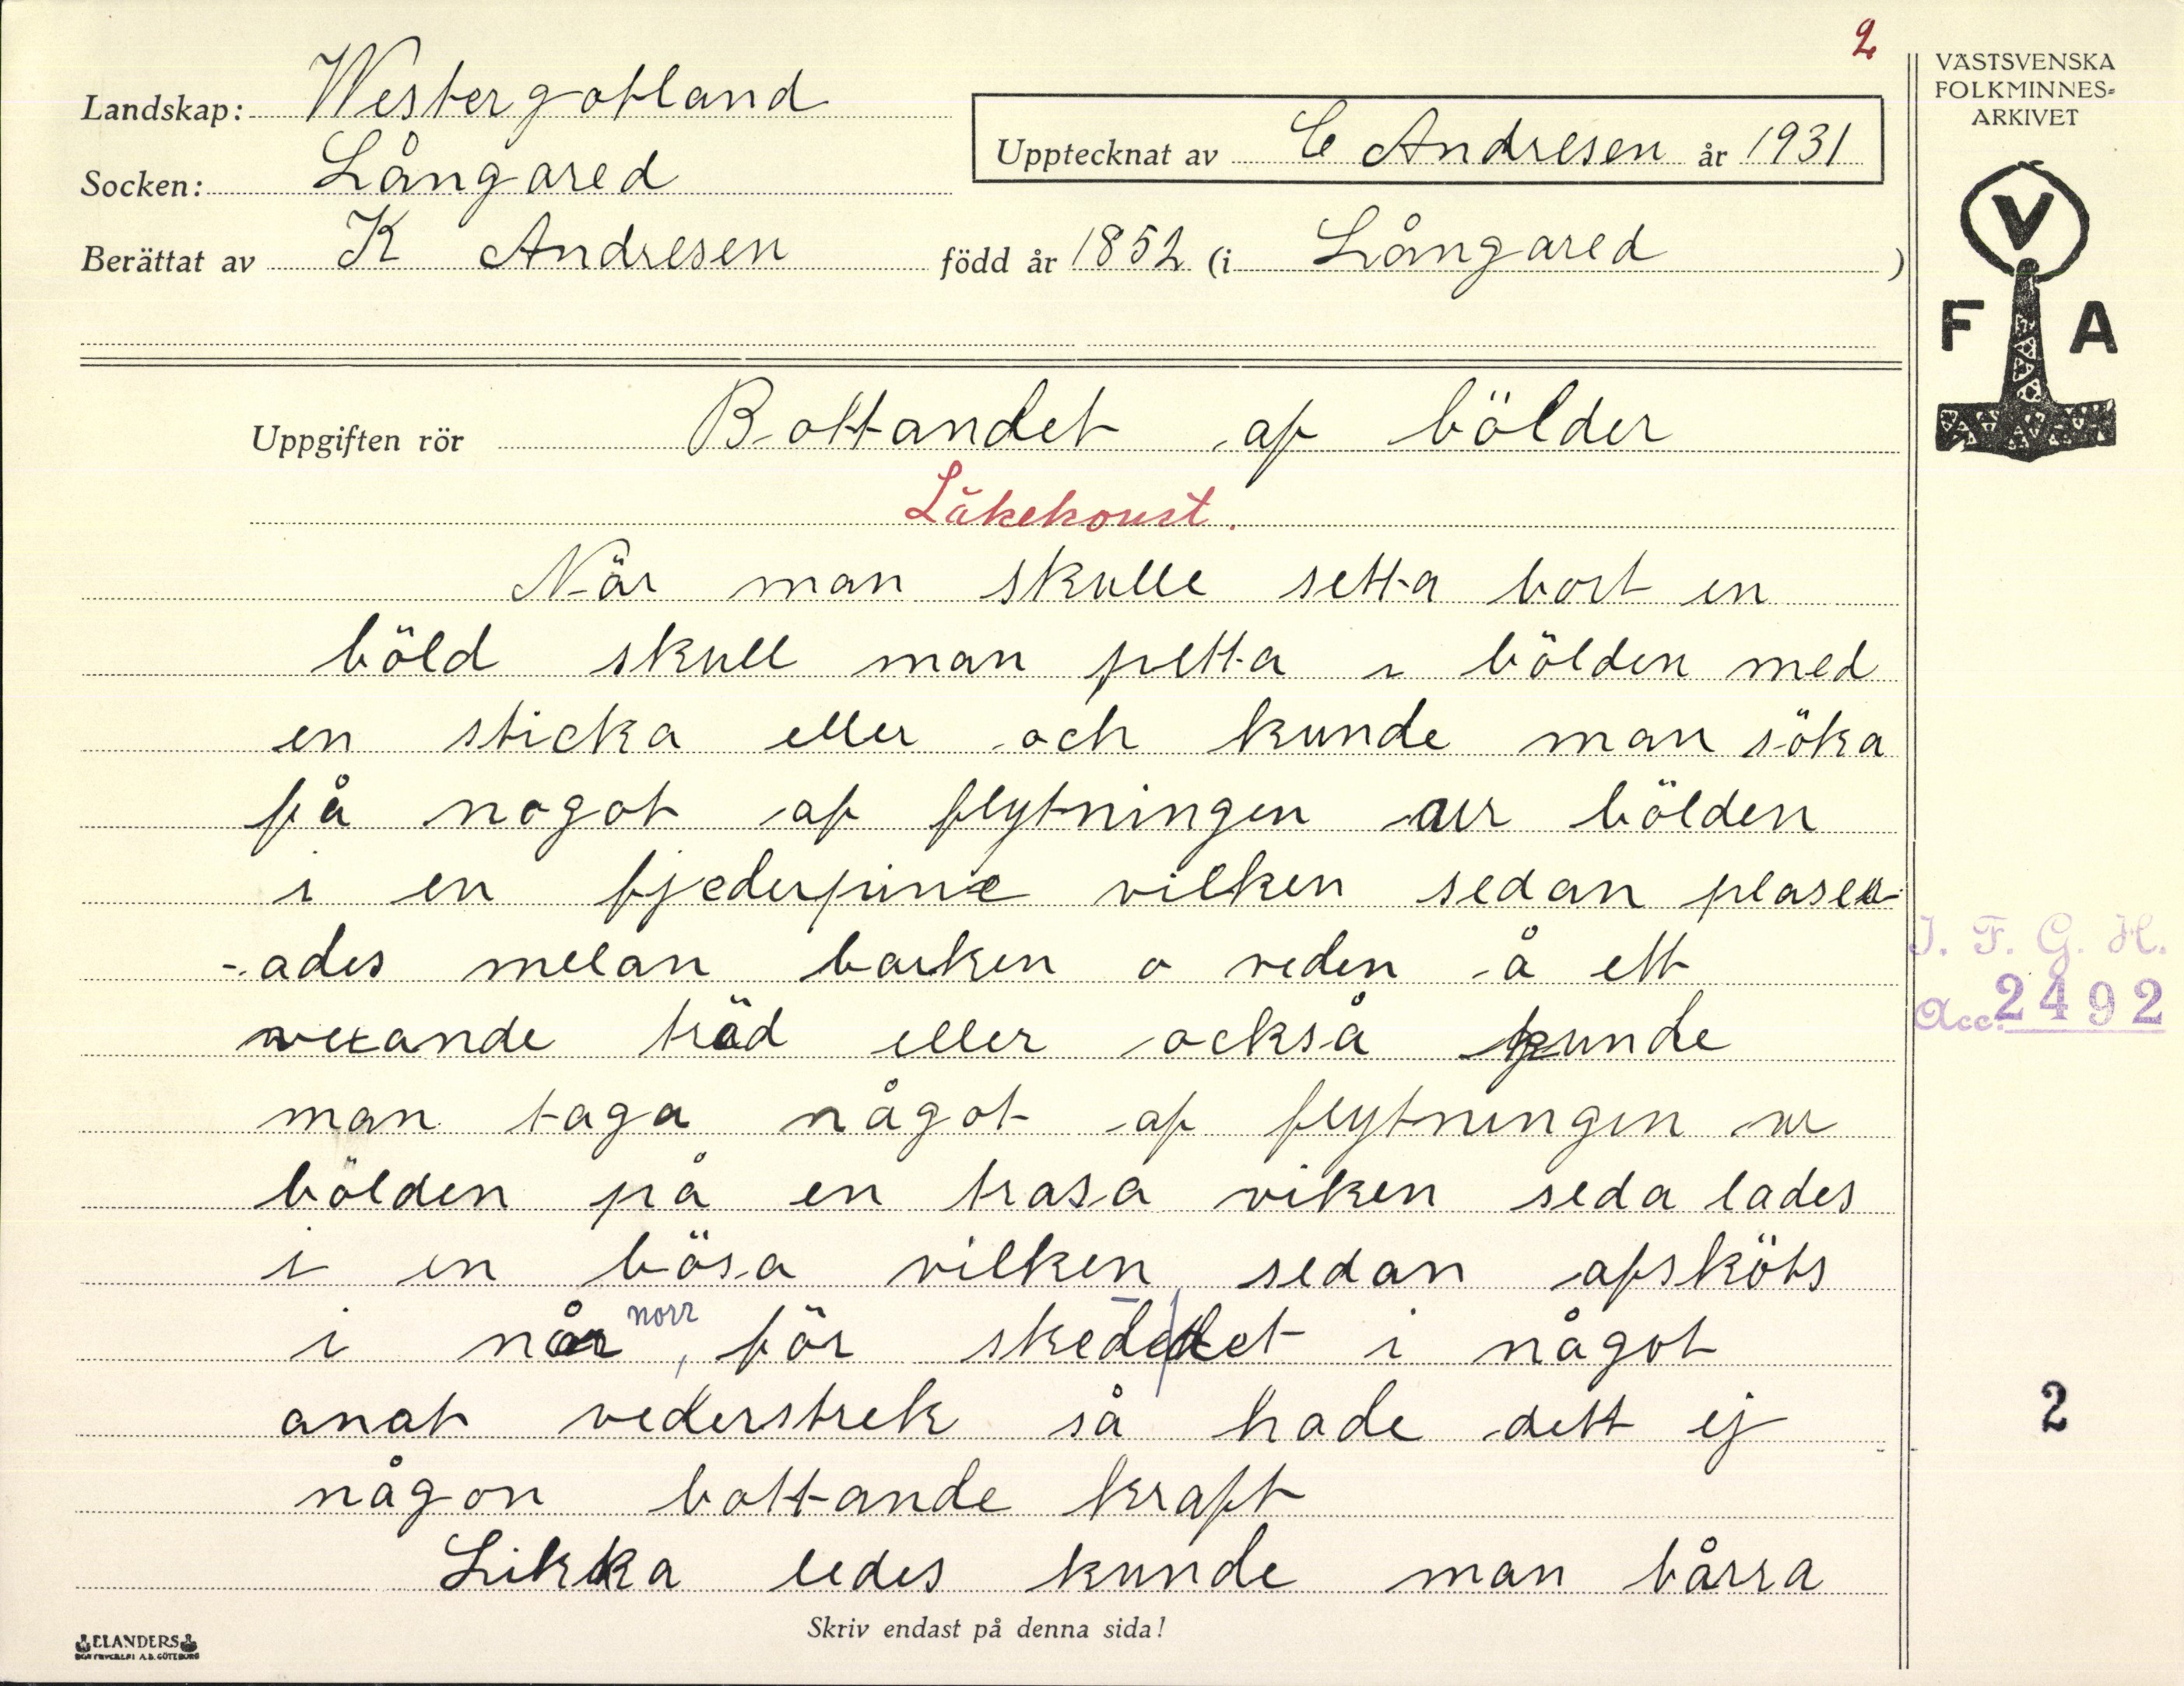 2
Landskap: Westergotland
Socken: Långared
Upptecknat av C Andresen år 1931
Berättat av K Andresen född år 1852 (i Långared )
VÄSTSVENSKA
FOLKMINNES-
ARKIVET
V
F A
Uppgiften rör Bottandet af bölder
Läkekonst.
När man skulle setta bort en
böld skull man petta i bölden med
en sticka eller och kunde man söka
få nogot af flytningen ur bölden
i en fjederpine vilken sedan plase
-ades mellan barken o veden å ett
vexande träd eller också kunde
man taga något af flytningen ur
bölden på en trasa viken seda lades
i en bösa vilken sedan afsköts
i når norr, för skedde det i något
anat vederstrek så hade dett ej
någon bottande kraft
Likka ledes kunde man bårra
J. F. G. H.
Acc. 2492
2
Skriv endast på denna sida!
ELANDERS
BOKTRYCKERI A.B. GÖTEBORG